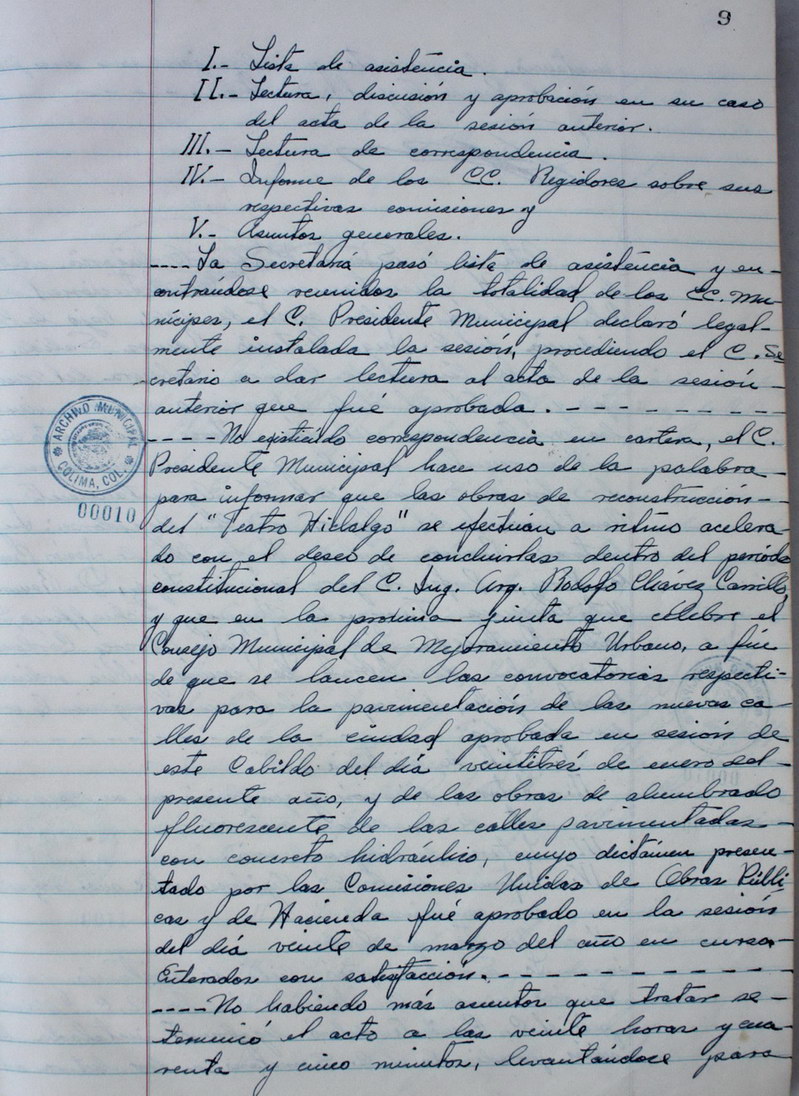 9
I.- Lista de asistencia.
II.- Lectura, discusión y aprobación en su caso
del acta de la sesión anterior.
III.- Lectura de correspondencia.
IV.- Informe de los CC. Regidores sobre sus
respectivas comisiones y
V.- Asuntos generales.
----La Secretaría pasó lista de asistencia y en-
contrándose reunidos la totalidad de los CC. Mu-
nícipes, el C. Presidente Municipal declaró legal-
mente instalada la sesión, procediendo el C. Se
cretario a dar lectura al acta de la sesión-
anterior que fué aprobada.---------
----No existiendo correspondencia en cartera, el C.
Presidente Municipal hace uso de la palabra
para informar que las obras de reconstrucción-
del "Teatro Hidalgo" se efectúan a ritmo acelera
do con el deseo de concluirlas dentro del período
constitucional del C. Ing. Arq. Rodolfo Chávez Carrillo,
y que en la próxima junta que célebre el
Consejo Municipal de Mejoramiento Urbano, a fin
de que se lancen las convocatorias respecti-
vas para la pavimentación de las nuevas ca-
lles de la ciudad aprobada en sesión de
este Cabildo del día veintitrés de enero del-
presente año, y de las obras de alumbrado
fluorescente de las calles pavimentadas-
con concreto hidráulico, cuyo dictámen presen-
tado por las Comisiones Unidas de Obras Públi
cas y de Hacienda fué aprobado en la sesión
del día veinte de marzo del año en curso-
Enterados con satisfacción.-----------
----No habiendo más asuntos que tratar se-
terminó el acto a las veinte horas y cua-
renta y cinco minutos, levantándoce para
ARCHIVO MUNICIPAL
COLIMA, COL.
00010